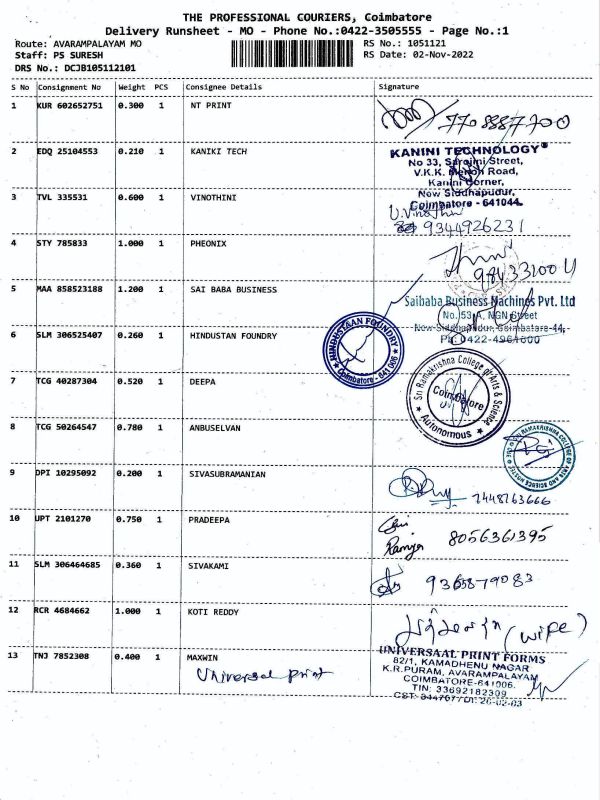 THE PROFESSIONAL COURIERS, Coimbatore
Delivery Runsheet - MO - Phone No.:0422-3505555 - Page No.:1
Route: AVARAMPALAYAM MO
RS No.: 1051121
Staff: PS SURESH
RS Date: 02-Nov-2022
DRS No.: DCJB105112101
S No Consignment No Weight PCS Consignee Details Signature
1 KUR 602652751 0.300 1 NT PRINT
7708887700
2 EDQ 25104553 0.210 1 KANIKI TECH
KANINI TECHNOLOGY
No 33, Sarojini Street,
V.K.K. Menon Road,
Kanini Corner,
New Siddhapudur,
Coimbatore - 641044
3 TVL 335531 0.600 1 VINOTHINI
U.Vinothini
9344926231
4 STY 785833 1.000 1 PHEONIX
5 MAA 858523188 1.200 1 SAI BABA BUSINESS
Saibaba Business Machines Pvt. Ltd
No.53 A, NGN Street
New Siddhapudur, Coimbatore-44,
Ph: 0422-4961000
6 SLM 306525407 0.260 1 HINDUSTAN FOUNDRY
HINDUSTAAN FOUNDRY
Coimbatore - 641 006
7 TCG 40287304 0.520 1 DEEPA
Sri Ramakrishna College of Arts & Science
Coimbatore
Autonomous
8 TCG 50264547 0.780 1 ANBUSELVAN
RAMAKRISHNA COLLEGE OF ARTS AND SCIENCE HOSTEL
9 DPI 10295092 0.200 1 SIVASUBRAMANIAN
7448763666
10 UPT 2101270 0.750 1 PRADEEPA
8056361395
11 SLM 306464685 0.360 1 SIVAKAMI
9365879083
12 RCR 4684662 1.000 1 KOTI REDDY
(wife)
13 TNJ 7852308 0.400 1 MAXWIN
Universal print
UNIVERSAAL PRINT FORMS
82/1, KAMADHENU NAGAR
K.R.PURAM, AVARAMPALAYAM
COIMBATORE-641006.
TIN: 33692182309